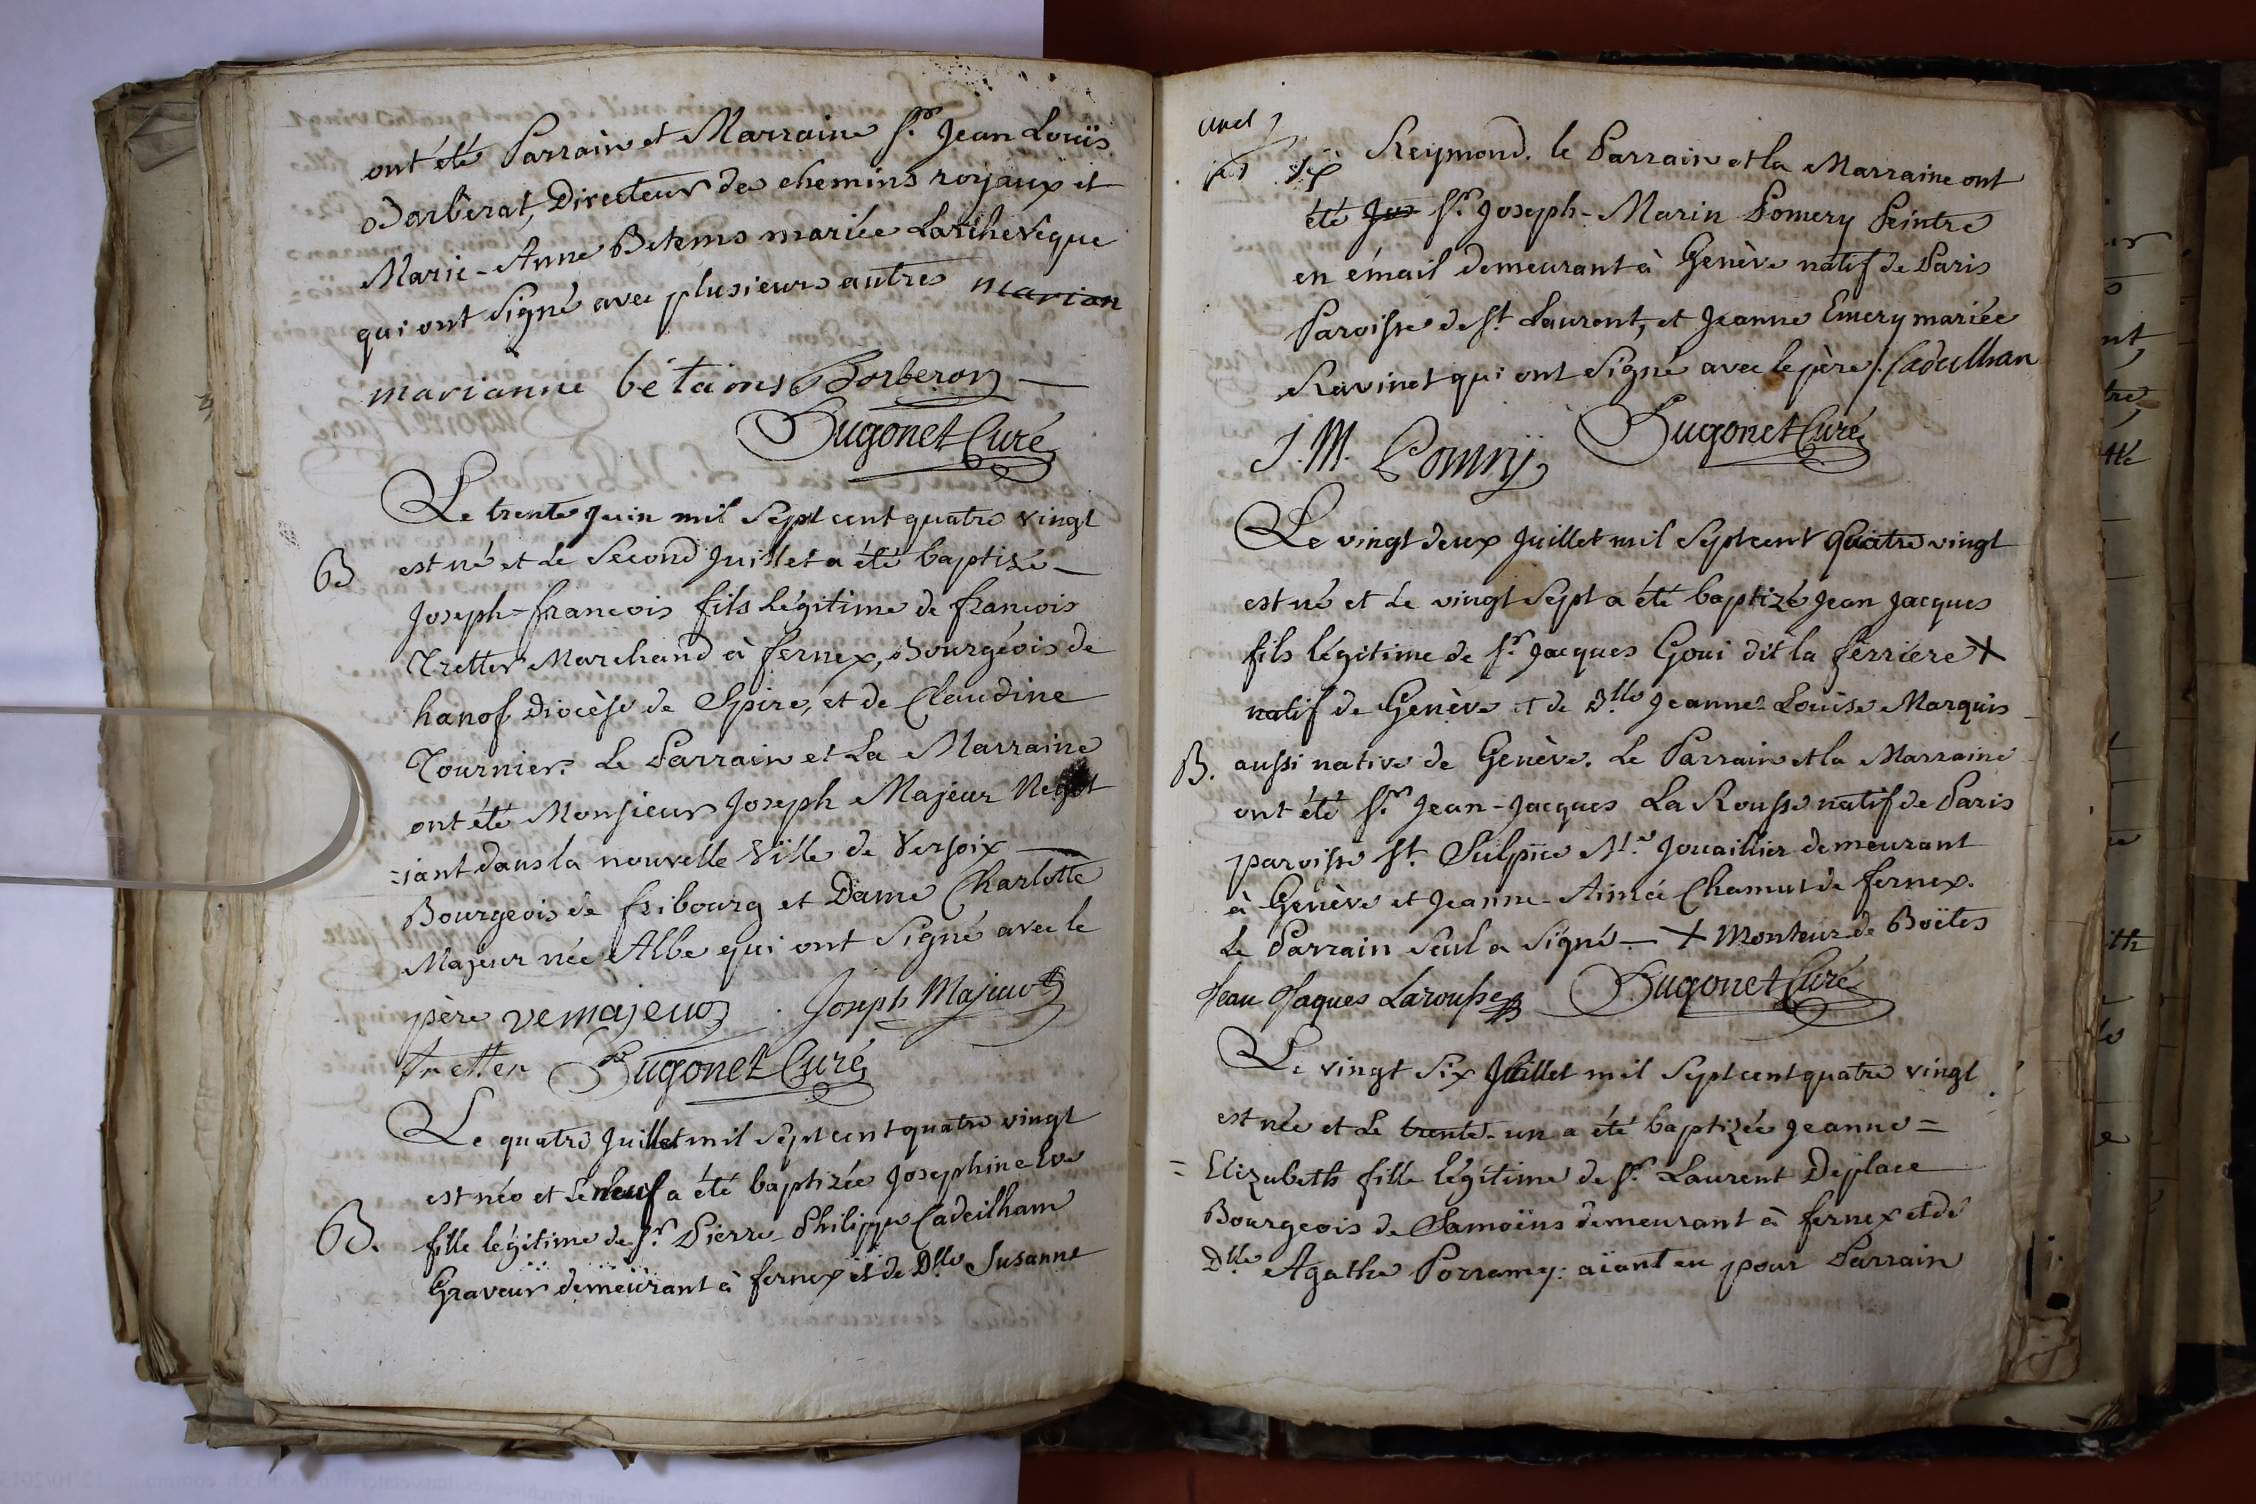 ont été Parrain et Marraine Sr. Jean Louïs
Barberat, Directeur des chemins royaux et
Marie-Anne Betems mariée Larcheveque
qui ont signé avec plusieurs autres marian
marianne bétams Barberon
Hugonet Curé
Le trente Juin mil sept cent quatre vingt
B
est né et le second Juillet a été baptizé
Joseph=françois fils légitime de françois
Tretter Marchand à fernex, Bourgeois de
hanof Diocèse de Spire, et de Claudine
Tournier. Le Parrain et La Marraine
ont été Monsieur Joseph Majeur Negot
=iant dans la nouvelle Ville de Versoix
Bourgeois de fribourg et Dame Charlotte
Majeur née Albe qui ont signé avec le
père ve majeur Joseph Majeur
tretter Hugonet Curé
Le quatre Juillet mil sept cent quatre vingt
est née et le neuf a été baptizée Josephine Eve
B.
fille légitime de Sr. Pierre Philippe Cadeilham
Graveur demeurant à fernex et de Dlle Susanne
Reymond. le Parrain et la Marraine ont
été Jos Sr. Joseph-Marin Pomery Peintre
en émail demeurant à Genève natif de Paris
Paroisse de St. Laurent, et Jeanne Emery mariée
Ravinet qui ont signé avec le père /. Cadeilhan
J. M. Pomry Hugonet Curé
Le vingt deux Juillet mil sept cent quatre vingt
est né et le vingt sept a été baptizé Jean Jacques
fils légitime de Sr. Jacques Goui dit la ferriere X
natif de Genève et de Dlle Jeanne-Louise Marquis
B.
aussi native de Genève. Le Parrain et la Marraine
ont été Sr. Jean-Jacques La Rousse natif de Paris
paroisse St. Sulpice Md. Jouaillier demeurant
à Genève et Jeanne-Aimée Chamut de fernex.
Le Parrain seul a signé — X Monteur de Boëtes
Jean Jaques Larousse Hugonet Curé
Le vingt six Juillet mil sept cent quatre vingt
est née et le trente-un a été baptizée Jeanne=
=Elizabeth fille légitime de Sr. Laurent Deplace
Bourgeois de Samoëns demeurant à fernex et de
Dlle Agathe Porramy: aïant eu pour Parrain